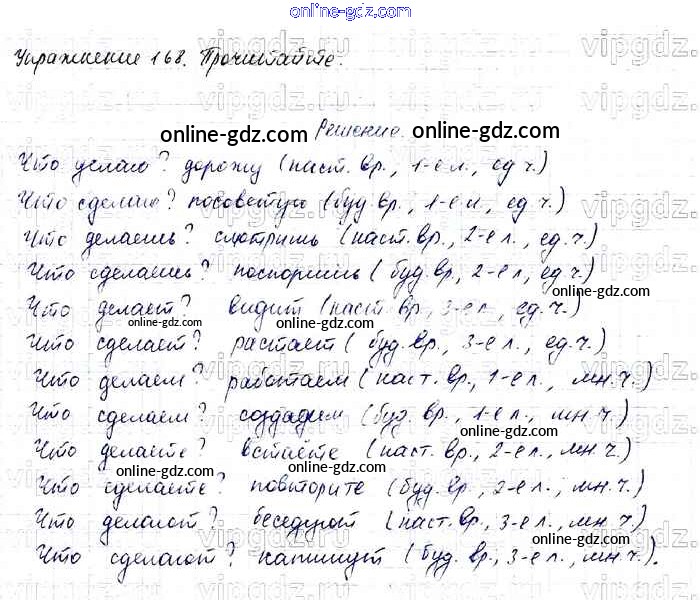 online-gdz.com
Упражнение 168. Прочитайте.
Решение.
online-gdz.com online-gdz.com
Что делаю? дорожу (наст. вр., 1-е л., ед ч.)
Что сделаю? посоветую (буд вр., 1-е л., ед ч.)
Что делаешь? смотришь (наст. вр., 2-е л., ед. ч.)
Что сделаешь? поспоришь (буд. вр., 2-е л., ед ч.)
Что делает? видит (наст вр., 3-е л., ед. ч.)
online-gdz.com online-gdz.com online-gdz.com
Что сделает? растает (буд. вр., 3-е л., ед. ч.)
Что делаем? работаем (наст. вр., 1-е л., мн. ч.)
online-gdz.com online-gdz.com online-gdz.com
Что сделаем? создадим (буд. вр., 1-е л., мн ч.)
online-gdz.com online-gdz.com
Что делаете? встаёте (наст. вр., 2-е л., мн. ч.)
online-gdz.com online-gdz.com online-gdz.com
Что сделаете? повторите (буд. вр., 2-е л., мн. ч.)
Что делают? беседуют (наст. вр., 3-е л., мн. ч.)
online-gdz.com online-gdz.com online-gdz.com
Что сделают? напишут (буд. вр., 3-е л., мн. ч.).
online-gdz.com